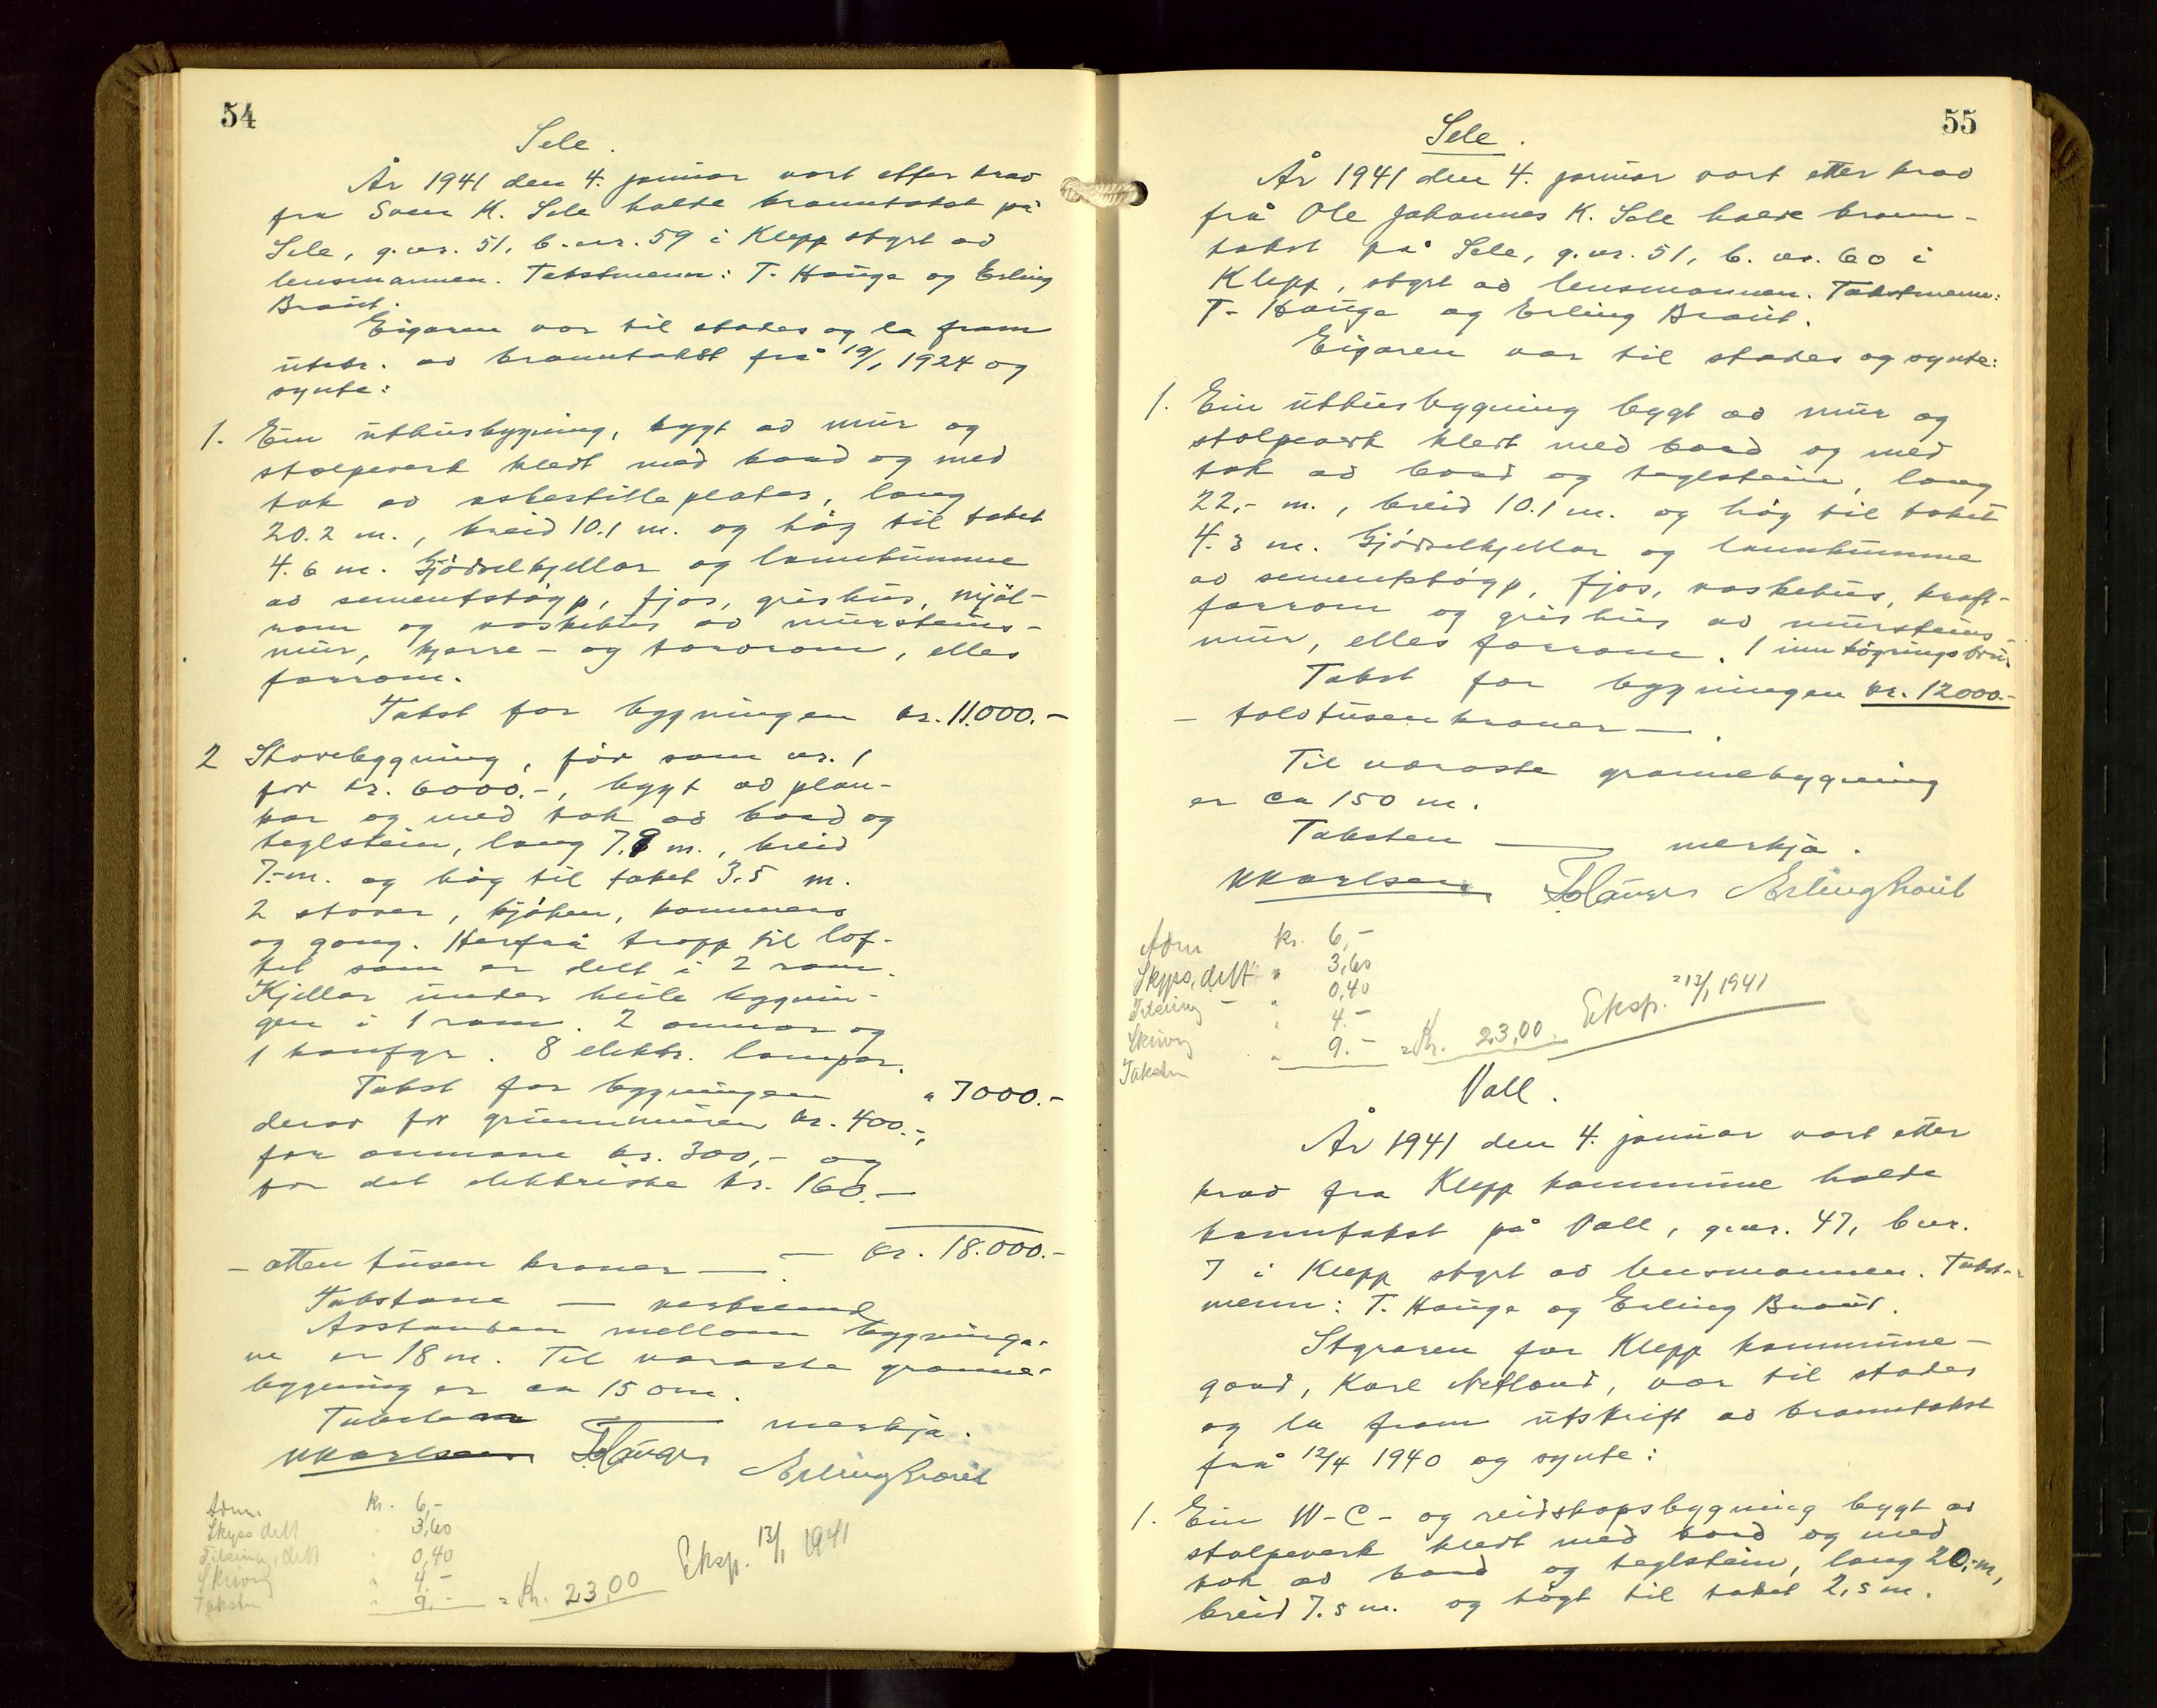 54
Sele.
År 1941 den 4. januar vart etter krav
fra Sven K. Sele halde branntakst på
Sele, g.nr. 51, b.nr. 59 i Klepp styrt av
lensmannen. Takstmenn: T. Hauge og Erling
Braut.
Eigaren var til stades og la fram
utskr. av branntakst frå 19/1 1924 og
synte:
1. Ein uthusbygning, bygt av mur og
stolpeverk kledt med bord og med
tak av asbestitteplater, lang
20.2 m., breid 10.1 m. og høg til taket
4.6 m. Gjødselkjellar og lannkumme
av sementstøyp, fjos, grishus, mjøl-
rom og vaskehus av mursteins-
mur, kjerre- og torvrom, elles
forrom.
Takst for bygningen kr. 11.000.-
2 Stovebygning, før som nr. 1
for kr. 6000.-, bygt av plan-
kar og med tak av bord og
teglstein, lang 7.9 m., breid
7.- m. og høg til taket 3.5 m.
2 stover, kjøken, kammers
og gang. Herfrå tropp til lof-
tet som er delt i 2 rom.
Kjellar under heile bygnin-
gen i 1 rom. 2 omnar og
1 komfyr. 8 elektr. lampor.
Takst for bygningen " 7000.-
derav for grunnmuren kr. 400.-,
for omnane kr. 300,- og
for det elektriske kr. 160.-
kr. 18.000.-
- atten tusen kroner - .
Takstane - verkeleud
Avstanden mellom bygninga-
ne er 18 m. Til næraste granne-
bygning er ca 150 m.
Taksten — merkja.
KKarlsen THauge Erling Braut
Adm. kr. 6,-
Skyss delt " 3,60
Tilseiing, delt " 0,40
Skriving " 4.-
Taksten " 9.- = Kr. 23,00 Eksp. 13/1 1941
55
Sele.
År 1941 den 4. januar vart etter krav
frå Ole Johannes K. Sele halde brann-
takst på Sele, g.nr. 51, b.nr. 60 i
Klepp, styrt av lensmannen. Takstmenn:
T. Hauge og Erling Braut.
Eigaren var til stades og synte:
1. Ein uthusbygning bygt av mur og
stolpeverk kledt med bord og med
tak av bord og teglstein, lang
22,- m., breid 10.1 m. og høg til taket
4.3 m. Gjødselkjellar og lannkumme
av sementstøyp, fjos, vaskehus, kraft-
forrom og grishus av mursteins-
mur, elles forrom. 1 innkøyringsbru.
Takst for bygningen kr. 12000.-
- tolvtusen kroner - .
Til næraste grannebygning
er ca 150 m.
Taksten — merkja.
KKarlsen THauge Erling Braut
Adm kr. 6,-
Skyss, delt " 3,60
Tilseiing - " 0,40
Skriving " 4.-
Taksten " 9.- = Kr. 23,00. Eksp. 13/1 1941
Vall.
År 1941 den 4. januar vart etter
krav fra Klepp kommune halde
branntakst på Vall, g.nr. 47, b.nr.
7 i Klepp styrt av lensmannen. Takst-
menn: T. Hauge og Erling Braut.
Styraren for Klepp kommune-
gard, Karl Nefland, var til stades
og la fram utskrift av branntakst
frå 12/4 1940 og synte:
1. Ein W-C- og reidskapsbygning bygt av
stolpeverk kledt med bord og med
tak av bord og teglstein, lang 20.- m,
breid 7.5 m. og høgt til taket 2,5 m.